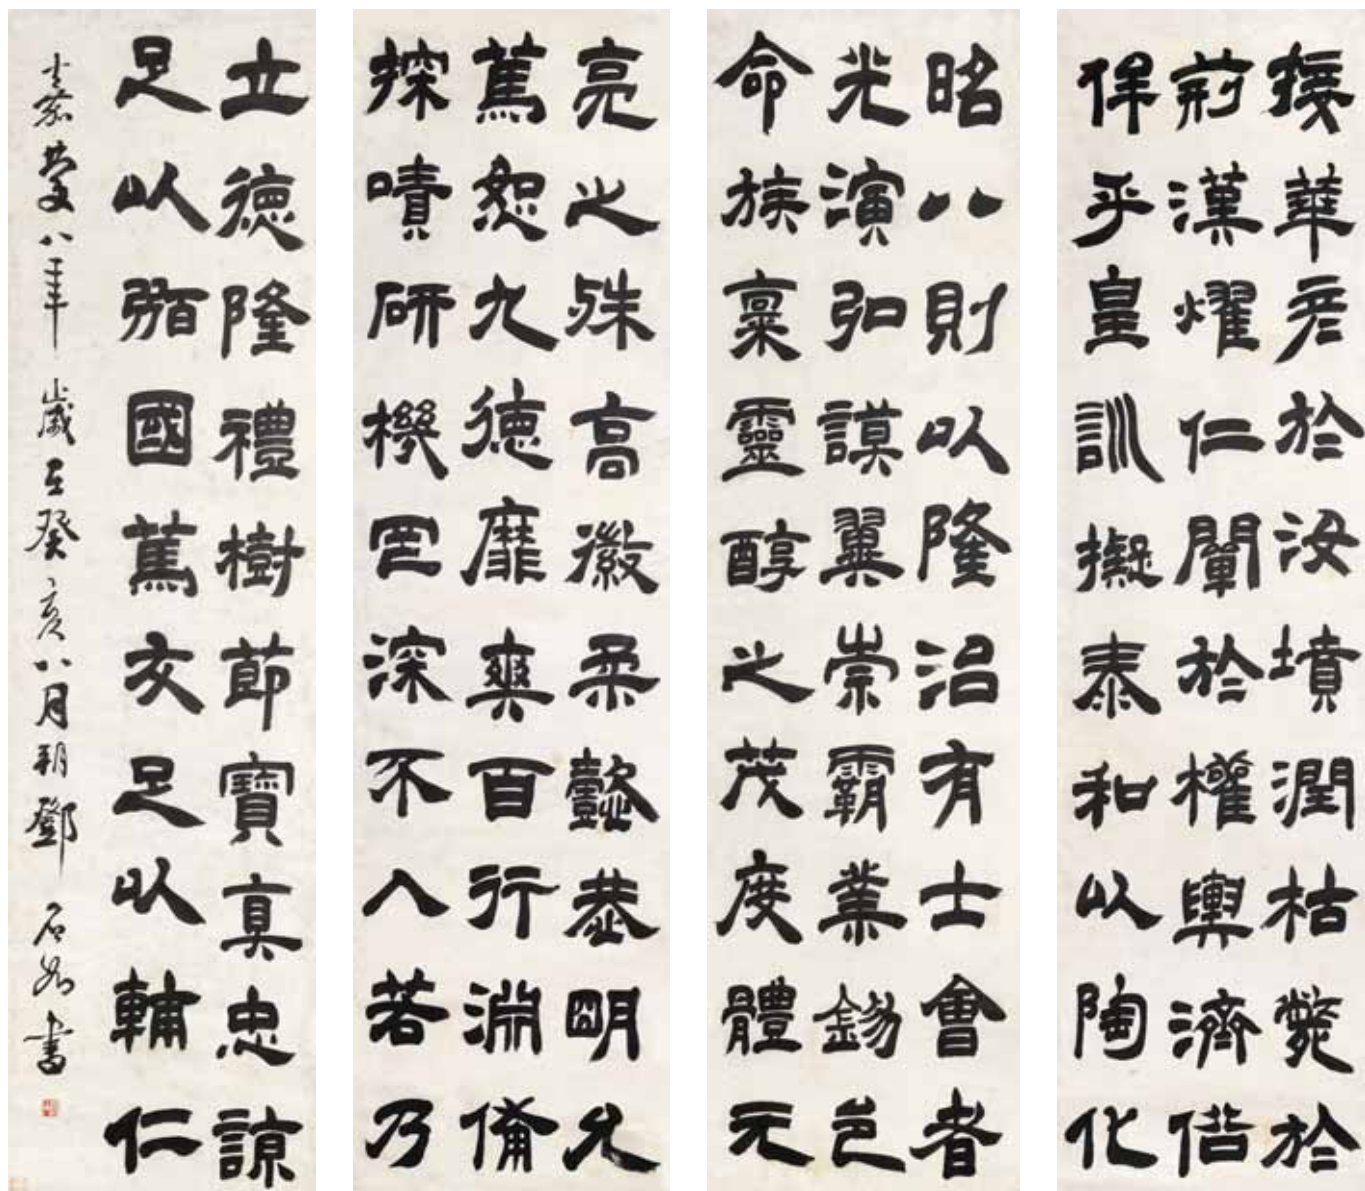 援華彥於汝墳潤枯斃於
荊漢燿仁闡於權輿濟偕
侔乎皇訓擬泰和以陶化
昭八則以隆治有士會者
光演弘謨翼崇霸業錫邑
命族稟靈醇之茂度體元
亮之殊高徽柔懿恭明允
篤恕九德靡爽百行淵備
探嘖研機罔深不入若乃
立德隆禮樹節寶真忠諒
足以弼國篤友足以輔仁
嘉慶八年歲在癸亥八月朔鄧石如書